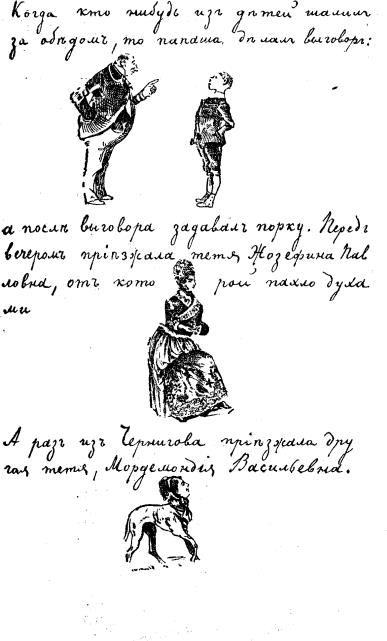 Когда кто нибудь изъ дѣтей шалилъ
за обѣдомъ, то папаша дѣлалъ выговоръ:
а послѣ выговора задавалъ порку. Передъ
вечеромъ пріѣзжала тетя Жозефина Пав
ловна, отъ кото рой пахло духа
ми
А разъ изъ Чернигова пріѣзжала дру
гая тетя, Мордемондія Васильевна.